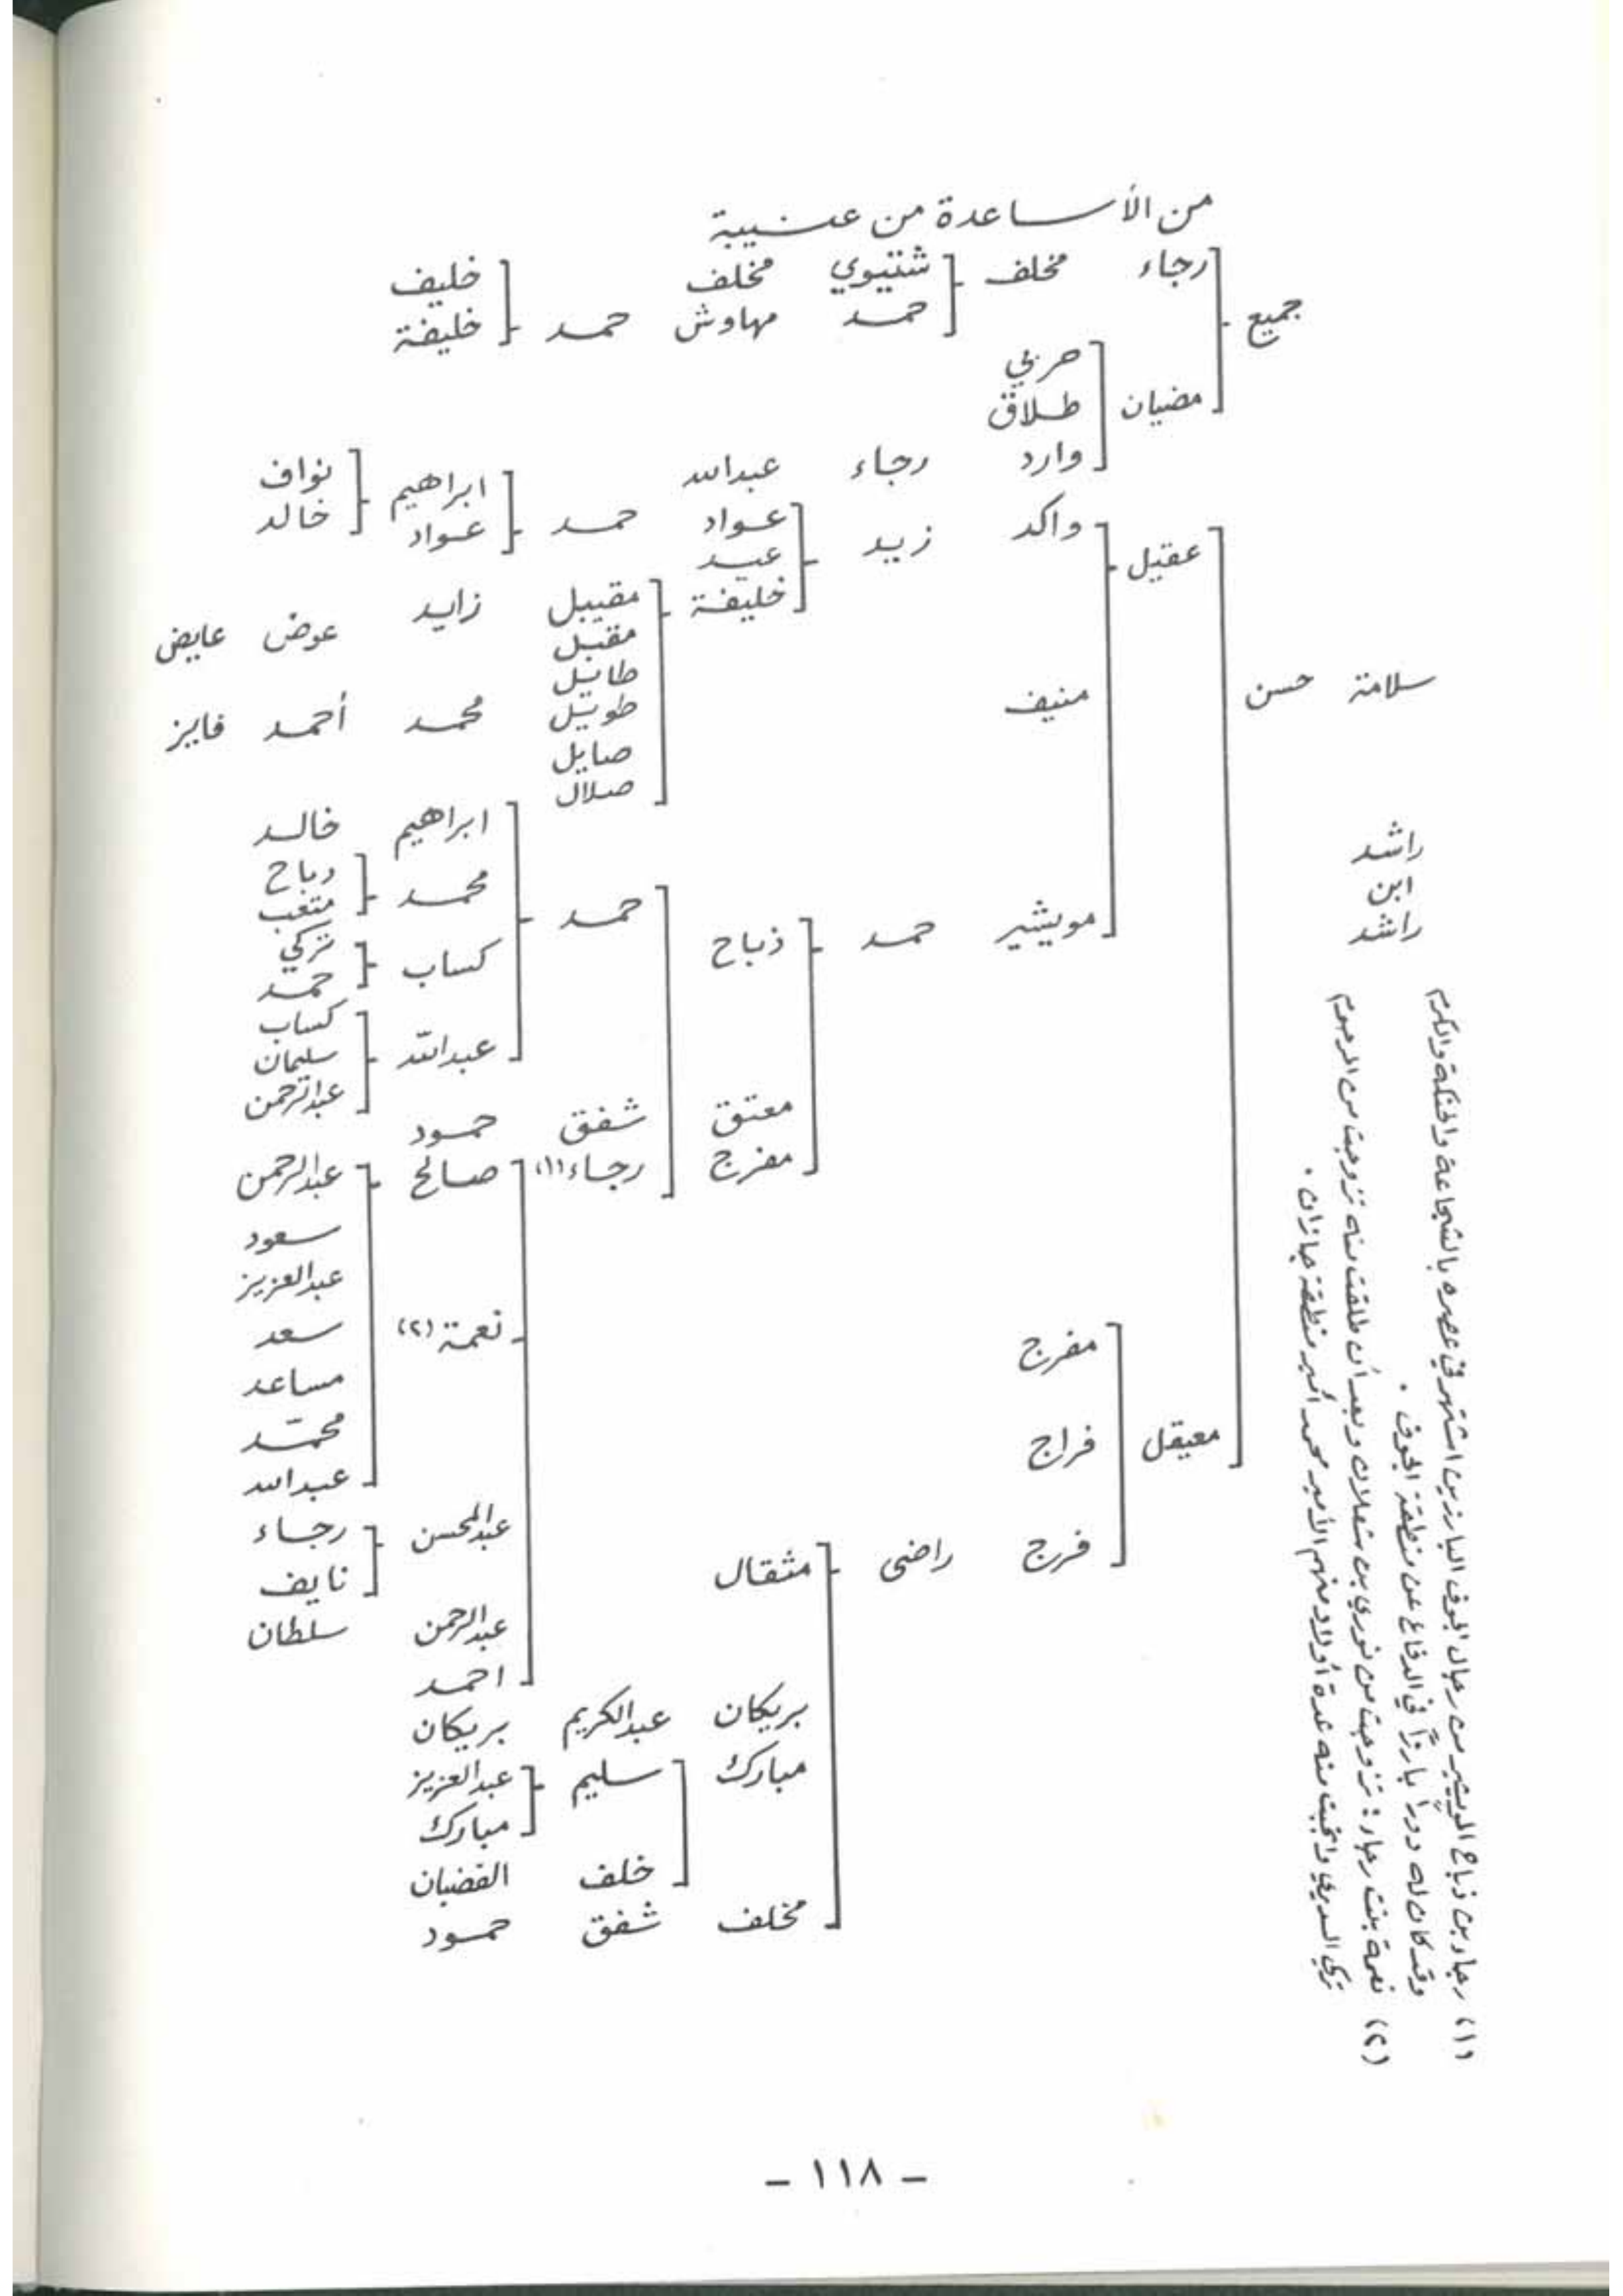 من الأساعدة من عتيبة
جميع
رجاء مخلف شتيوي مخلف خليف
حمد مهاوش حمد خليفة
مضيان حربي
طلاق
وارد رجاء عبدالله
سلامة حسن
عقيل واكد زيد عواد حمد ابراهيم نواف
عواد خالد
عيد
خليفة مقيبل زايد عوض عايض
مقبل
طايل
طويل محمد أحمد فايز
صايل
صلال
منيف
راشد
ابن
راشد
مويشير حمد ذباح حمد ابراهيم خالد
محمد ذباح
متعب
كساب تركي
حمد
عبدالله كساب
سليمان
عبدالرحمن
معتق شفق حمود
مفرج رجاء (١) صالح عبدالرحمن
سعود
عبدالعزيز
نعمة (٢) سعد
مساعد
محمد
عبدالله
عبدالمحسن رجاء
نايف
عبدالرحمن سلطان
احمد
معيقل مفرج
فراج
فرج راضي مثقال
بريكان عبدالكريم بريكان
مبارك سليم عبدالعزيز
مبارك
خلف القضبان
مخلف شفق حمود
(١) رجاء بن ذباح المويشير من رجال الجوف البارزين اشتهر في عصره بالشجاعة والحنكة والكرم
وقد كان له دوراً بارزاً في الدفاع عن منطقة الجوف .
(٢) نعمة بنت رجاء : تزوجت من نوري بن شعلان وبعد أن طلقت منه تزوجت من المرحوم
تركي السديري وانجبت منه عدة أولاد منهم الأمير محمد أمير منطقة جازان .
- ١١٨ -